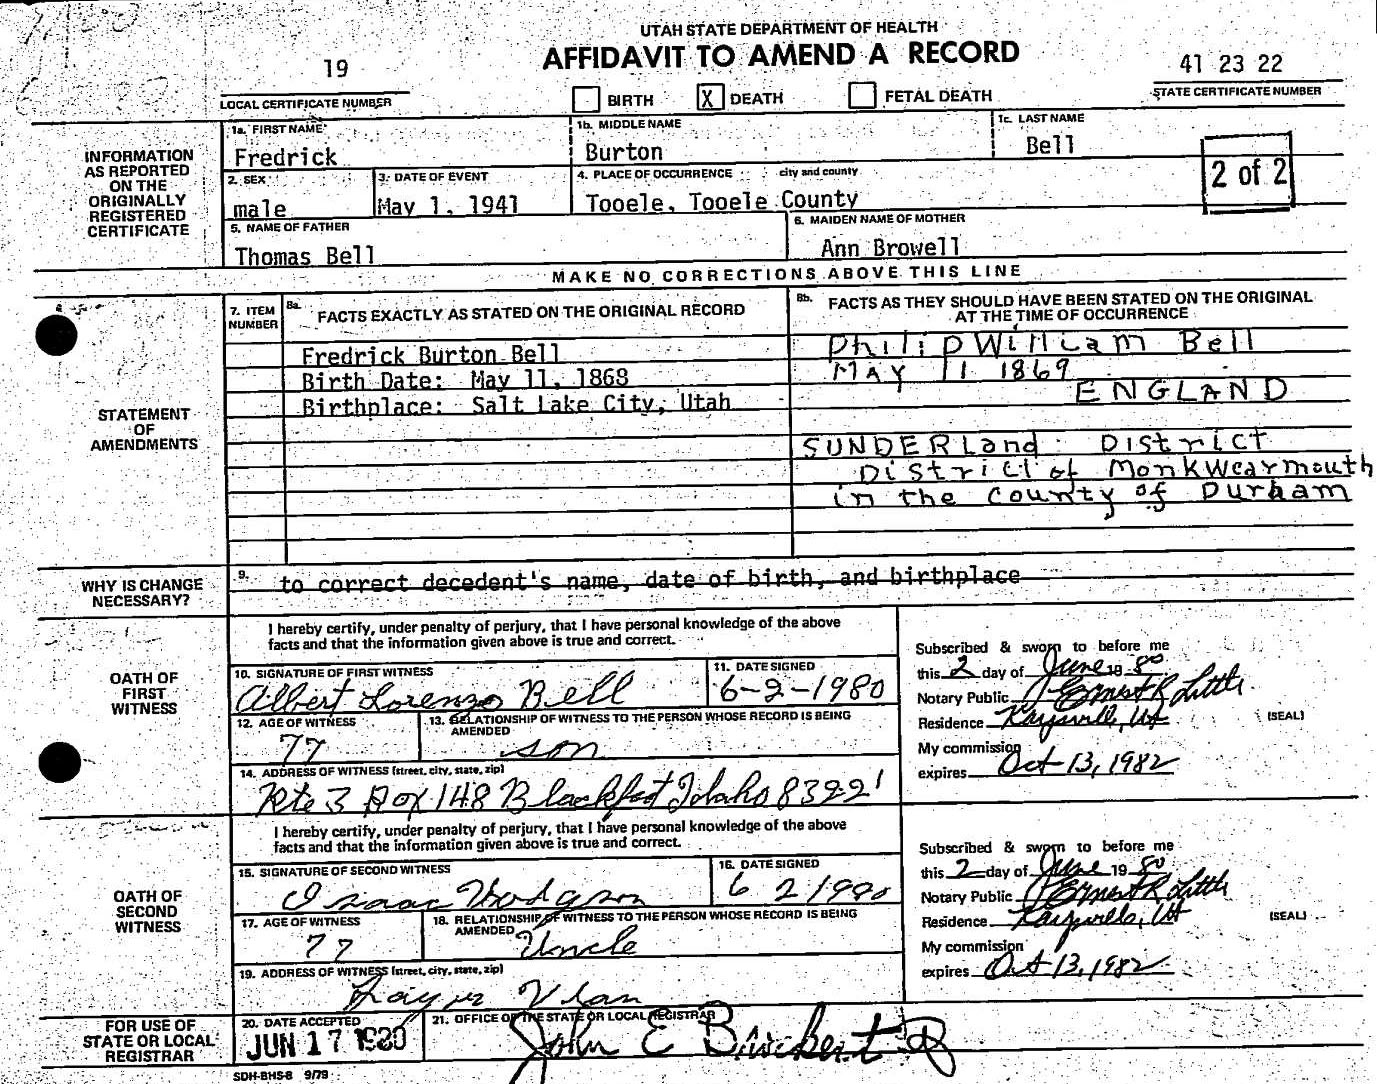 UTAH STATE DEPARTMENT OF HEALTH
AFFIDAVIT TO AMEND A RECORD
19
LOCAL CERTIFICATE NUMBER
BIRTH X DEATH FETAL DEATH
41 23 22
STATE CERTIFICATE NUMBER
INFORMATION AS REPORTED ON THE ORIGINALLY REGISTERED CERTIFICATE
1a. FIRST NAME
Fredrick
1b. MIDDLE NAME
Burton
1c. LAST NAME
Bell
2 of 2
2. SEX
male
3. DATE OF EVENT
May 1, 1941
4. PLACE OF OCCURRENCE city and county
Tooele, Tooele County
5. NAME OF FATHER
Thomas Bell
6. MAIDEN NAME OF MOTHER
Ann Browell
MAKE NO CORRECTIONS ABOVE THIS LINE
STATEMENT OF AMENDMENTS
7. ITEM NUMBER
8a. FACTS EXACTLY AS STATED ON THE ORIGINAL RECORD
8b. FACTS AS THEY SHOULD HAVE BEEN STATED ON THE ORIGINAL AT THE TIME OF OCCURRENCE
Fredrick Burton Bell
Philip William Bell
Birth Date: May 11, 1868
MAY 11 1869
Birthplace: Salt Lake City, Utah
ENGLAND
SUNDERLand District
District of Monkwearmouth
in the County of Durham
WHY IS CHANGE NECESSARY?
9. to correct decedent's name, date of birth, and birthplace
OATH OF FIRST WITNESS
I hereby certify, under penalty of perjury, that I have personal knowledge of the above
facts and that the information given above is true and correct.
10. SIGNATURE OF FIRST WITNESS
Albert Lorenzo Bell
11. DATE SIGNED
6-2-1980
12. AGE OF WITNESS
77
13. RELATIONSHIP OF WITNESS TO THE PERSON WHOSE RECORD IS BEING AMENDED
son
14. ADDRESS OF WITNESS (street, city, state, zip)
Rte 3 Box 148 Blackfoot Idaho 83221
Subscribed & sworn to before me
this 2 day of June 19 80
Notary Public Ernest R Little
Residence Kaysville, Ut (SEAL)
My commission
expires Oct 13, 1982
OATH OF SECOND WITNESS
I hereby certify, under penalty of perjury, that I have personal knowledge of the above
facts and that the information given above is true and correct.
15. SIGNATURE OF SECOND WITNESS
Isaac Hodgson
16. DATE SIGNED
6 2 1980
17. AGE OF WITNESS
77
18. RELATIONSHIP OF WITNESS TO THE PERSON WHOSE RECORD IS BEING AMENDED
Uncle
19. ADDRESS OF WITNESS (street, city, state, zip)
Subscribed & sworn to before me
this 2 day of June 19 80
Notary Public Ernest R Little
Residence Kaysville, Ut (SEAL)
My commission
expires Oct 13, 1982
FOR USE OF STATE OR LOCAL REGISTRAR
20. DATE ACCEPTED
JUN 17 1980
21. OFFICE OF THE STATE OR LOCAL REGISTRAR
John E Brockert
SDH-BHS-8 9/79